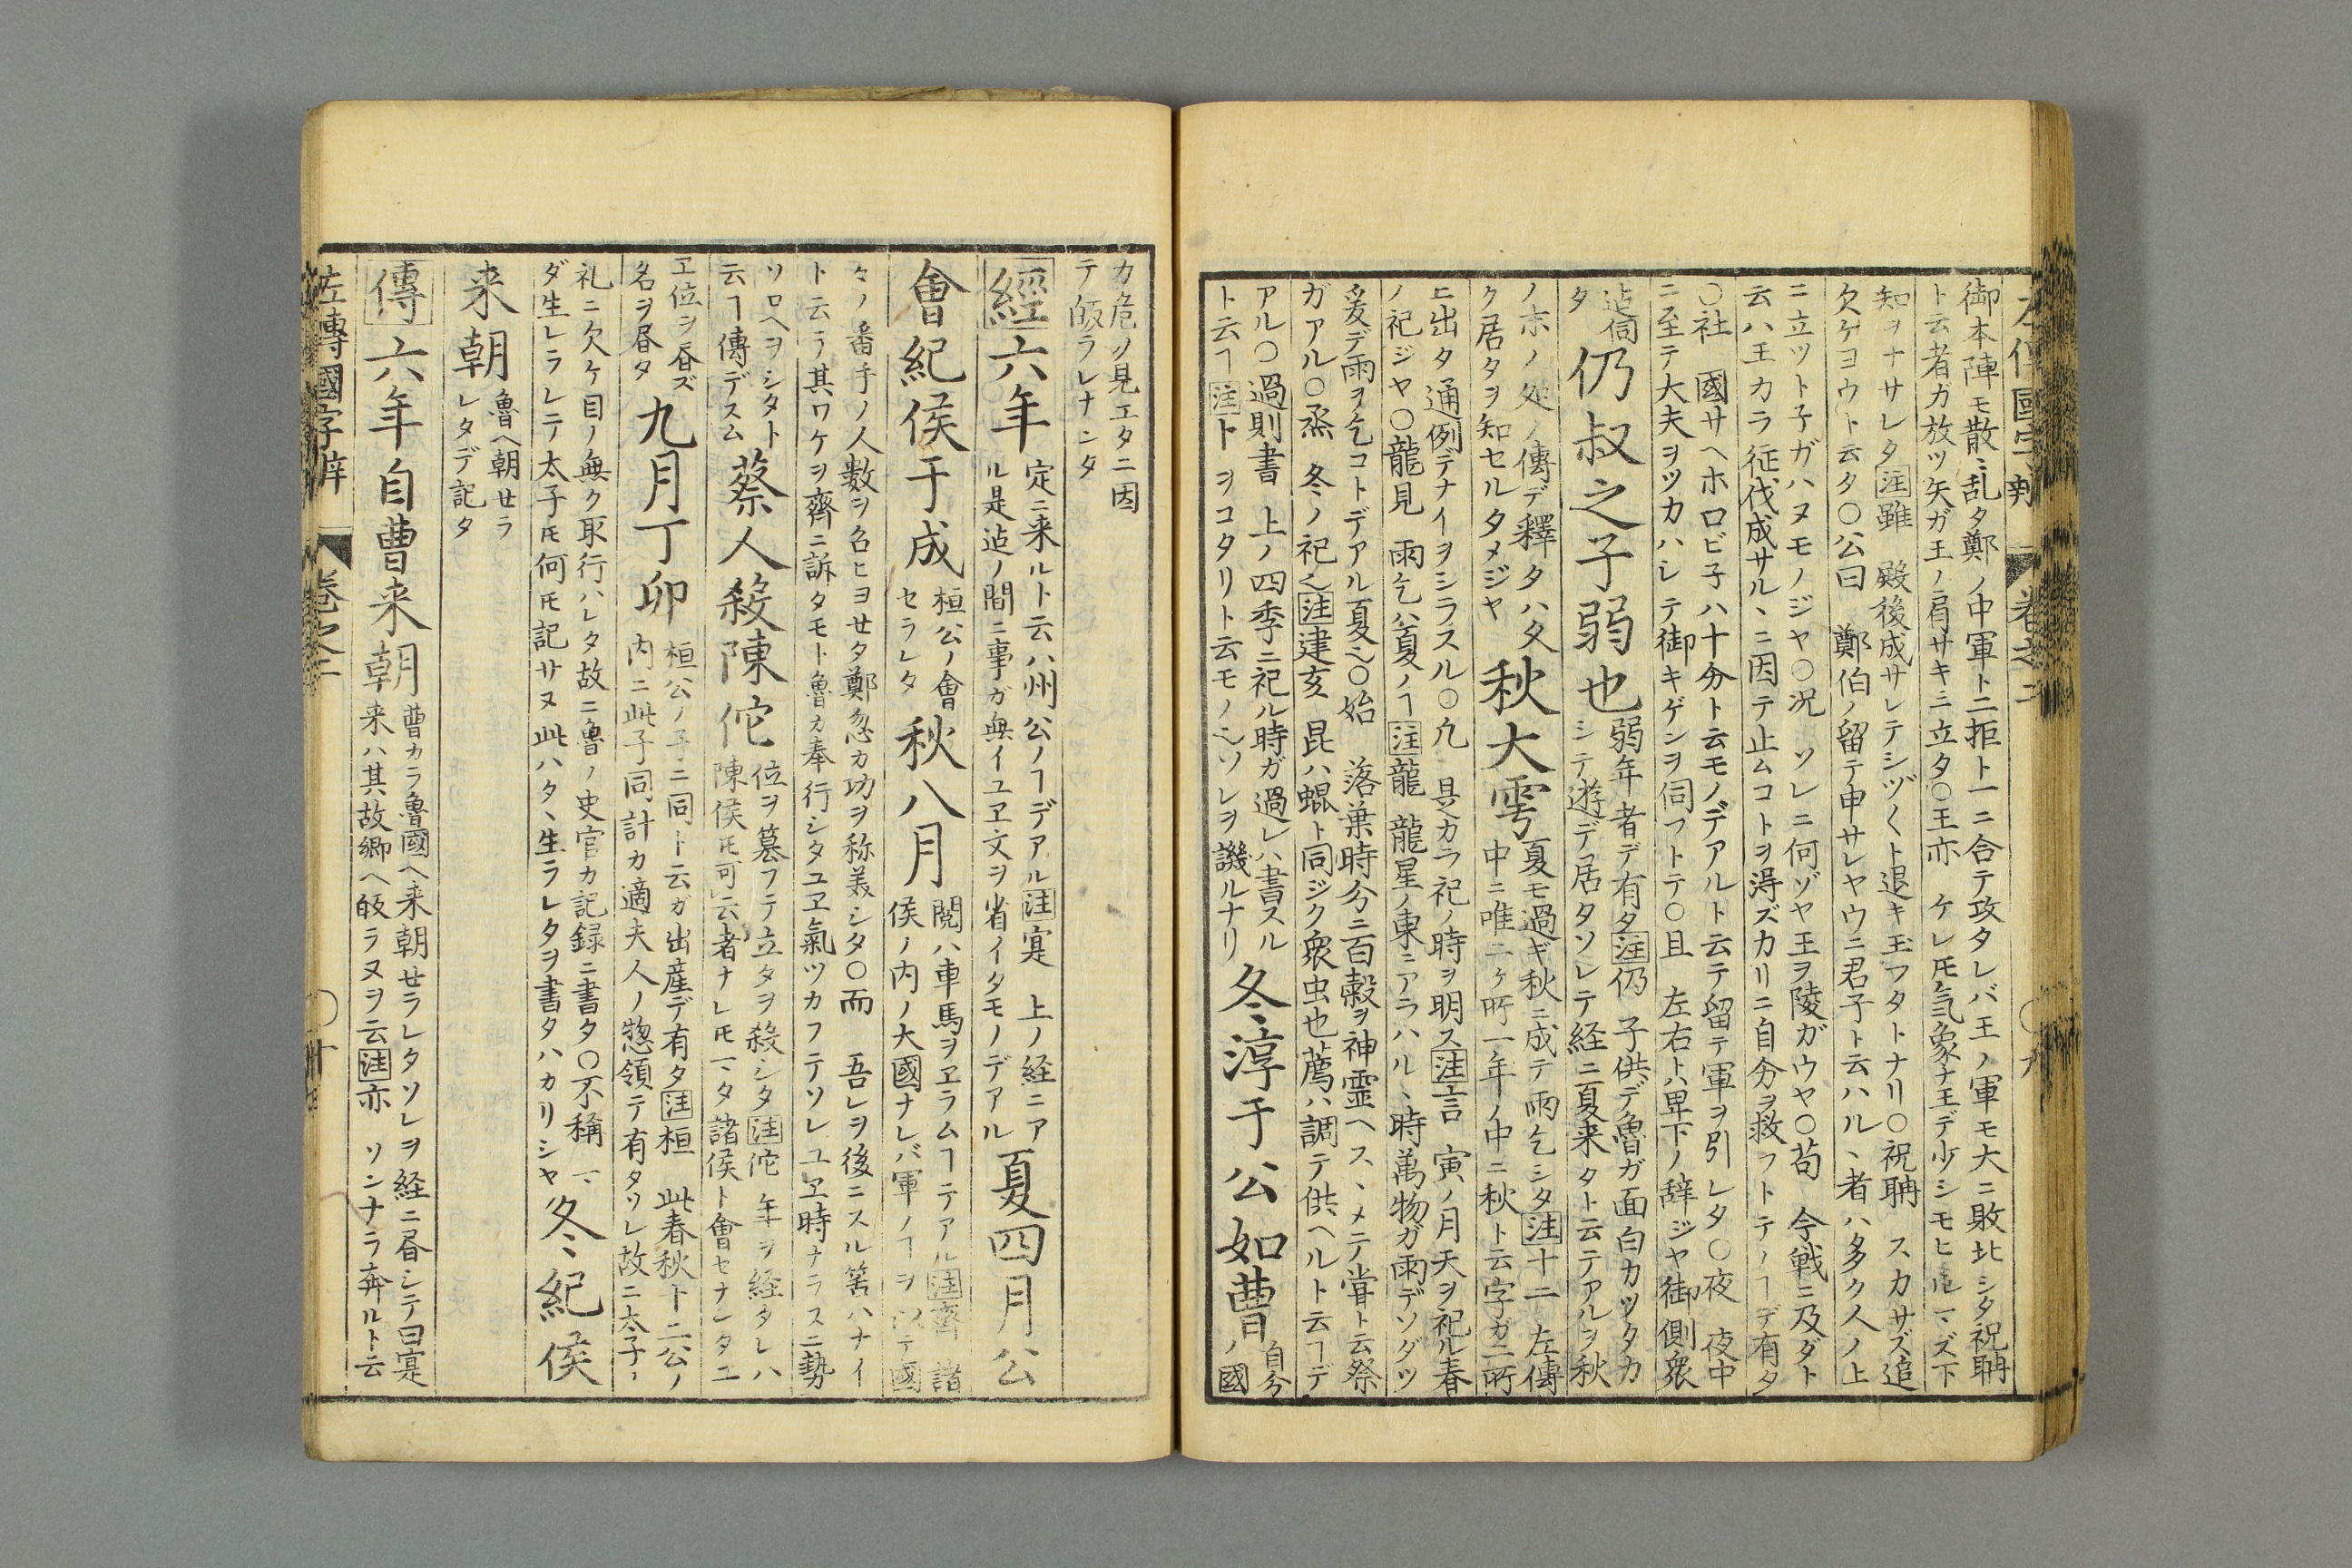 左傳國字辨 巻之二 〇九
御本陣モ散〻乱タ鄭ノ中軍ト二拒ト一ニ合テ攻タレバ王ノ軍モ大ニ敗北シタ祝聃
ト云者ガ放ツ矢ガ王ノ肩サキニ立タ〇王亦 ケレ𪜈気象ナ王デ少シモヒルマズ下
知ヲナサレタ注雖 殿後成サレテシヅ〱ト退キ玉フタトナリ〇祝聃 スカサズ追
欠ケヨウト云タ〇公曰 鄭伯ノ留テ申サレヤウニ君子ト云ハル、者ハ多ク人ノ上
ニ立ツト子ガハヌモノジヤ〇况 ソレニ何ゾヤ王ヲ陵ガウヤ〇苟 今戦ニ及ダト
云ハ王カラ征伐成サル、ニ因テ止ムコトヲ淂ズカリニ自分ヲ救フトテノヿデ有タ
〇社 國サヘホロビ子ハ十分ト云モノデアルト云テ留テ軍ヲ引レタ〇夜 夜中
ニ至テ大夫ヲツカハレテ御キゲンヲ伺フトテ〇且 左右トハ卑下ノ辞ジヤ御側衆
迠伺
タ
仍叔之子弱也
弱年者デ有タ注仍 子供デ魯ガ面白カツタカ
シテ遊デ居タソレテ経ニ夏来タト云テアルヲ秋
ノホノ処ノ傳デ釋タハタ
ク居タヲ知セルタメジヤ
秋大雩
夏モ過ギ秋ニ成テ雨乞シタ注十二 左傳
中ニ唯二ケ所一年ノ中ニ秋ト云字ガ二所
ニ出タ 通例デナイヲシラスル〇凢 具カラ祀ノ時ヲ明ス注言 寅ノ月天ヲ祀ル春
ノ祀ジヤ〇龍見 雨乞ハ夏ノヿ注龍 龍星ノ東ニアラハル、時萬物ガ雨デソダツ
夛デ雨ヲ乞コトデアル夏〻〇始 落葉時分ニ百穀ヲ神霊ヘス、メテ甞ト云祭
ガアル〇烝 冬ノ祀〻注建亥 昆ハ蜫ト同ジク衆虫也薦ハ調テ供ヘルト云ヿデ
アル〇過則書 上ノ四季ニ祀ル時ガ過レハ書スル
ト云ヿ注卜 ヲコタリト云モノ〻ソレヲ譏ルナリ
冬淳于公如曹
自分
ノ國
カ危ク見エタニ因
テ皈ラレナンタ
經六年
定ニ来ルト云ハ州公ノヿデアル注寔 上ノ経ニア
ル是迠ノ間ニ事ガ無イユヱ文ヲ省イタモノデアル
夏四月公
會紀侯于成
桓公ノ會
セラレタ
秋八月
閲ハ車馬ヲヱラムヿテアル注齊 諸
侯ノ内ノ大國ナレバ軍ノヿヲ以テ國
々ノ番手ノ人数ヲ召ヒヨセタ鄭忽カ功ヲ称美シタ〇而 吾レヲ後ニスル筈ハナイ
ト云ラ其ワケヲ齊ニ訴タモト魯カ奉行シタユヱ氣ツカフテソレユヱ時ナラスニ勢
ソロヘヲシタト
云ヿ傳デスム
蔡人殺陳佗
位ヲ簒フテ立タヲ殺シタ注佗 年ヲ経タレハ
陳侯𪜈可云者ナレ𪜈マタ諸侯ト會セナンタユ
ヱ位ヲ㫺ズ
名ヲ㫺タ
九月丁卯
桓公ノ子ニ同ト云ガ出産デ有タ注桓 此春秋十二公ノ
内ニ此子同計カ適夫人ノ惣領テ有タソレ故ニ太子ノ
礼ニ欠ケ目ノ無ク取行ハレタ故ニ魯ノ史官カ記録ニ書タ〇不稱 マ
ダ生レラレニテ太子𪜈何𪜈記サヌ此ハタ、生ラレタヲ書タハカリシヤ
冬紀侯
来朝
魯ヘ朝セラ
レタデ記タ
傳六年自曹来朝
曹カラ魯國ヘ来朝セラレタソレヲ経ニ㫺シテ曰寔
来ハ其故郷ヘ皈ラヌヲ云注亦 ソンナラ奔ルト云
左傳國字辨 巻之二 〇十